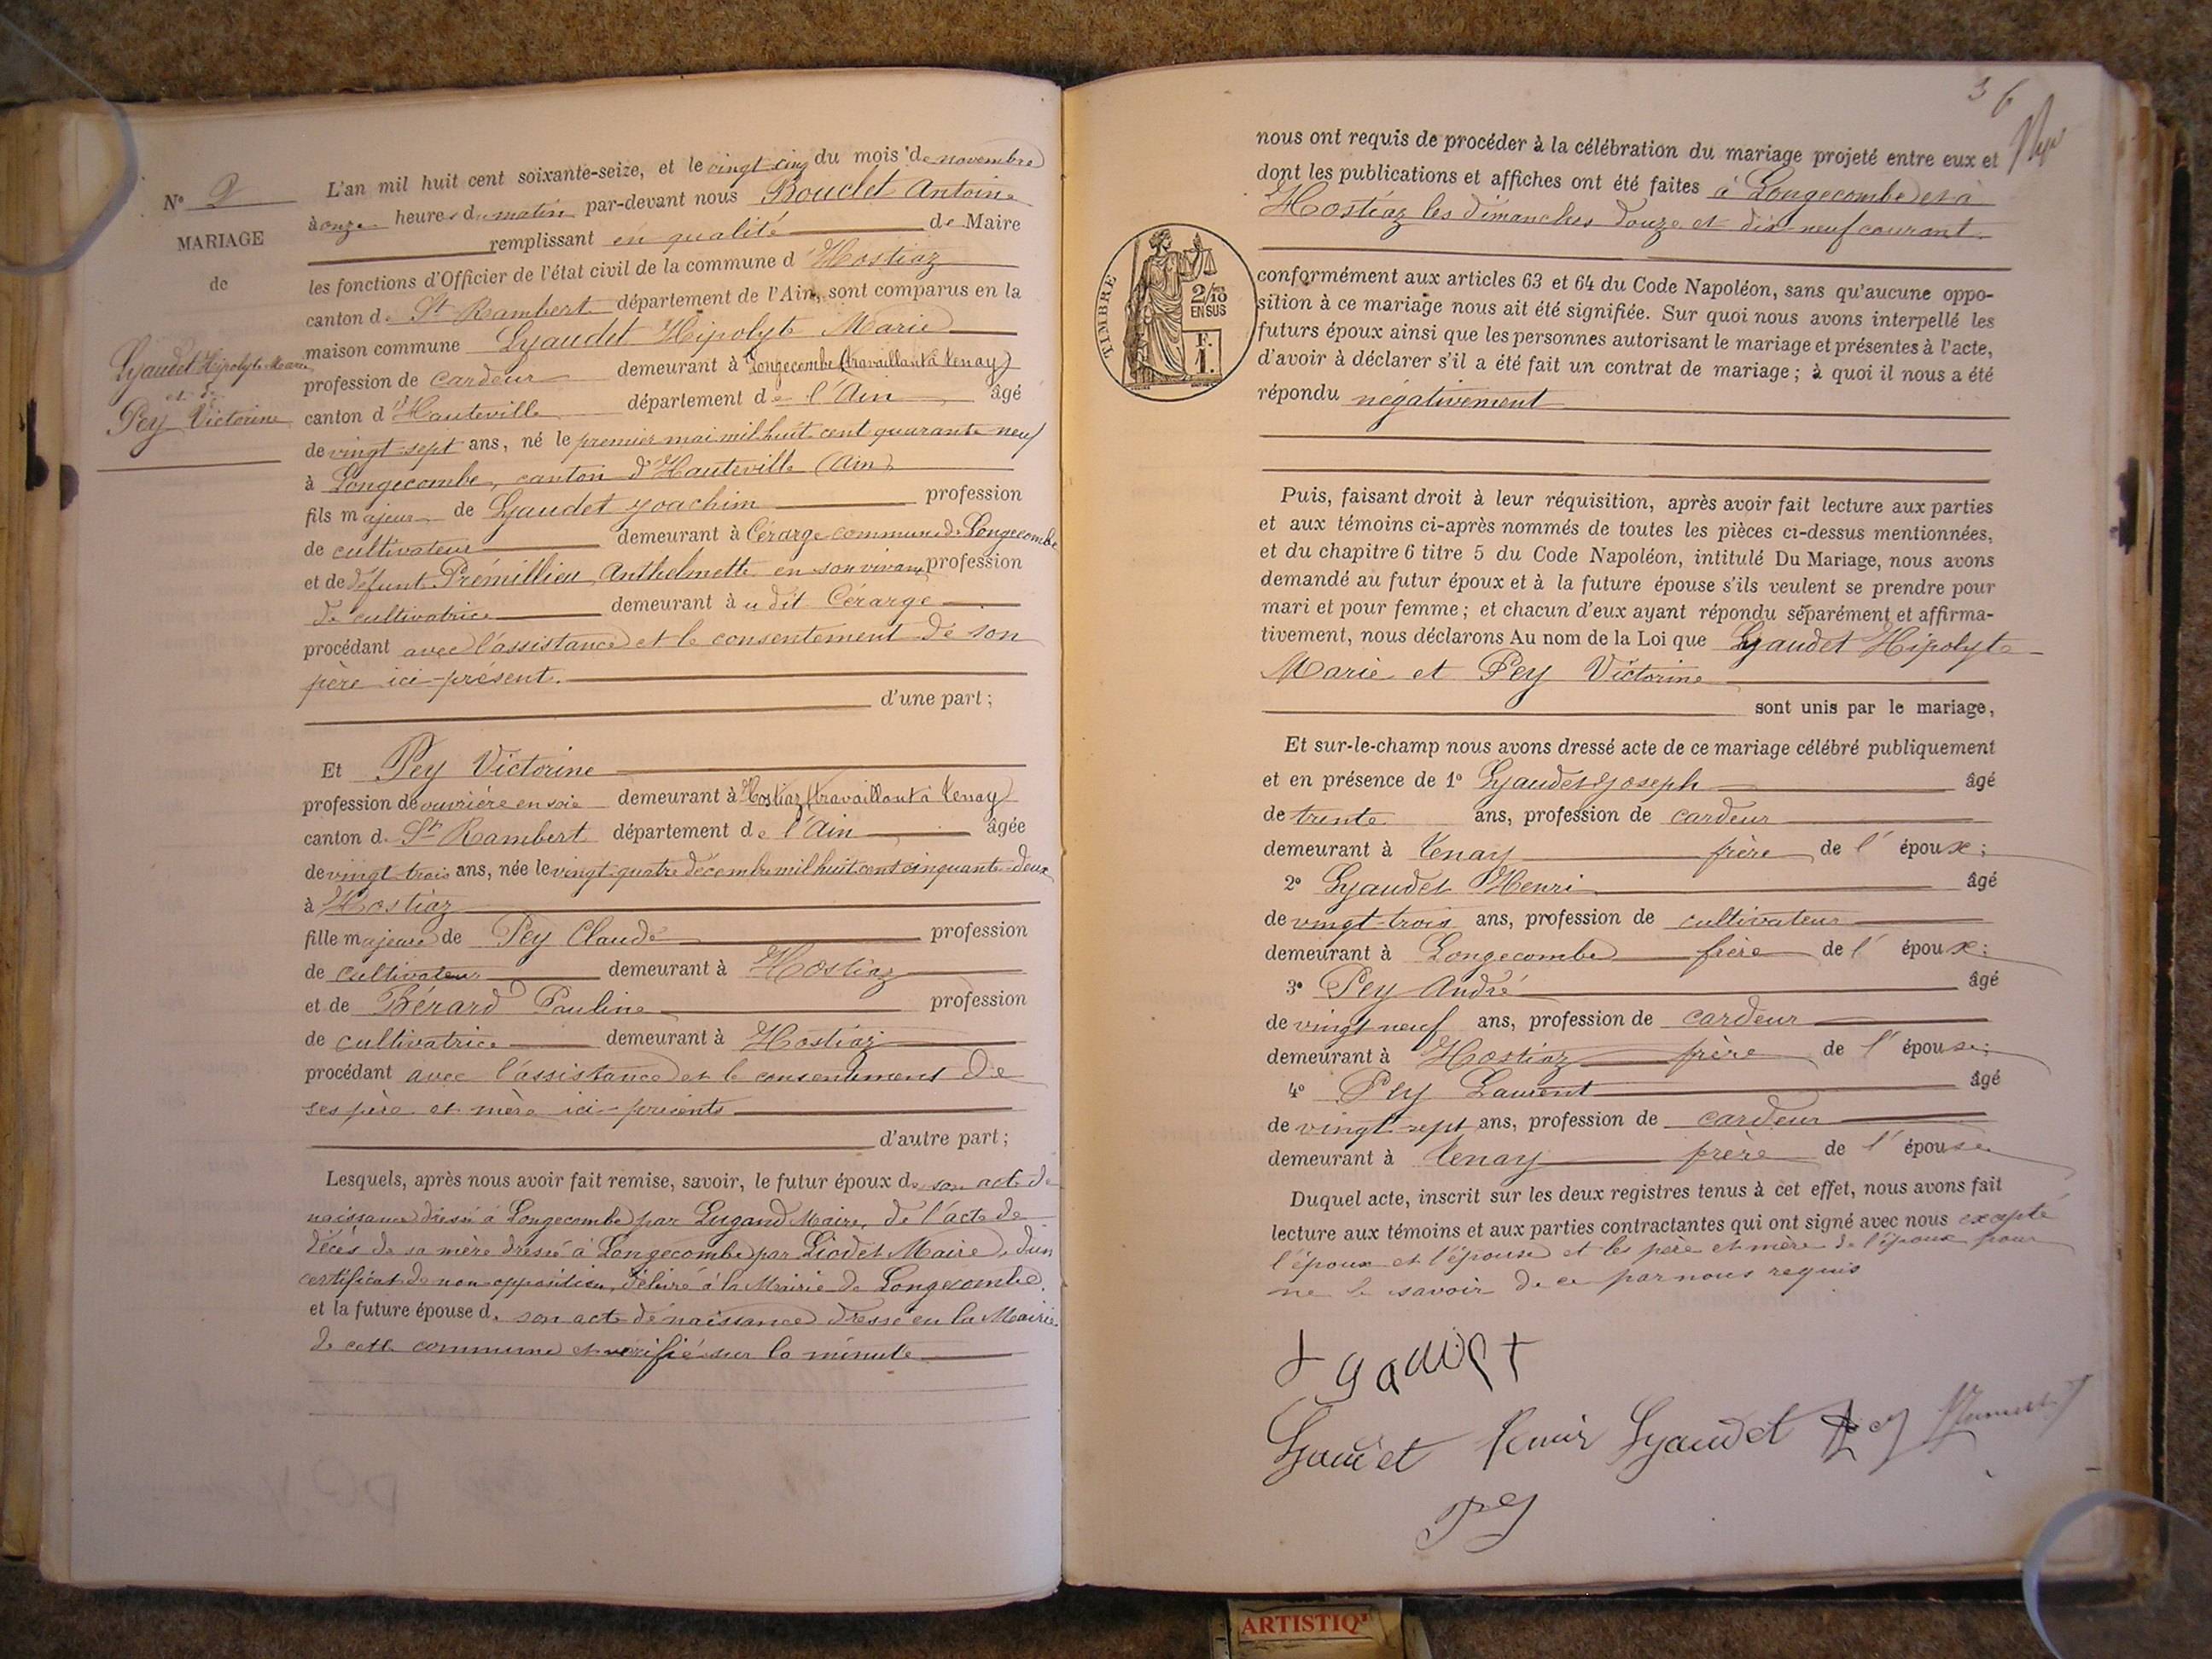 N° 2
MARIAGE
de
Lyaudet Hipolyte Marie
et de
Pey Victorine
L'an mil huit cent soixante-seize, et le vingt cinq du mois de novembre
à onze heures du matin par-devant nous Bouclet Antoine
remplissant en qualité de Maire
les fonctions d'Officier de l'état civil de la commune d'Hostiaz
canton de St Rambert département de l'Ain, sont comparus en la
maison commune Lyaudet Hipolyte Marie
profession de cardeur demeurant à Longecombe (travaillant à tenay)
canton d'Hauteville département de l'Ain âgé
de vingt-sept ans, né le premier mai mil huit cent quarante neuf
à Longecombe, canton d'Hauteville (Ain)
fils majeur de Lyaudet Joachim profession
de cultivateur demeurant à Cérarge commune de Longecombe
et de défunt Prémillieu Anthelmette en son vivant profession
de cultivatrice demeurant à u dit Cérarge
procédant avec l'assistance et le consentement de son
père ici-présent.
d'une part;
Et Pey Victorine
profession de ouvrière en soie demeurant à Hostiaz (travaillant à tenay)
canton de St Rambert département de l'Ain âgée
de vingt trois ans, née le vingt-quatre décembre mil huit cent cinquante-deux
à Hostiaz
fille majeure de Pey Claude profession
de cultivateur demeurant à Hostiaz
et de Bérard Pauline profession
de cultivatrice demeurant à Hostiaz
procédant avec l'assistance et le consentement de
ses père et mère ici-présents
d'autre part;
Lesquels, après nous avoir fait remise, savoir, le futur époux de son acte de
naissance dressé à Longecombe par Lugand Maire, de l'acte de
décès de sa mère dressé à Longecombe par Liodet Maire, d'un
certificat de non opposition, délivré à la Mairie de Longecombe,
et la future épouse de son acte de naissance dressé en la Mairie
de cette commune et vérifié sur la minute
36
nous ont requis de procéder à la célébration du mariage projeté entre eux et
dont les publications et affiches ont été faites à Longecombe et à
Hostiaz les dimanches douze et dix-neuf courant.
TIMBRE
2/10
EN SUS
F.
1.
conformément aux articles 63 et 64 du Code Napoléon, sans qu'aucune oppo-
sition à ce mariage nous ait été signifiée. Sur quoi nous avons interpellé les
futurs époux ainsi que les personnes autorisant le mariage et présentes à l'acte,
d'avoir à déclarer s'il a été fait un contrat de mariage; à quoi il nous a été
répondu négativement
Puis, faisant droit à leur réquisition, après avoir fait lecture aux parties
et aux témoins ci-après nommés de toutes les pièces ci-dessus mentionnées,
et du chapitre 6 titre 5 du Code Napoléon, intitulé Du Mariage, nous avons
demandé au futur époux et à la future épouse s'ils veulent se prendre pour
mari et pour femme; et chacun d'eux ayant répondu séparément et affirma-
tivement, nous déclarons Au nom de la Loi que Lyaudet Hipolyte
Marie et Pey Victorine
sont unis par le mariage,
Et sur-le-champ nous avons dressé acte de ce mariage célébré publiquement
et en présence de 1° Lyaudet Joseph âgé
de trente ans, profession de cardeur
demeurant à tenay frère de l'époux;
2° Lyaudet Henri âgé
de vingt-trois ans, profession de cultivateur
demeurant à Longecombe frère de l'époux;
3° Pey André âgé
de vingt neuf ans, profession de cardeur
demeurant à Hostiaz frère de l'épouse;
4° Pey Laurent âgé
de vingt sept ans, profession de cardeur
demeurant à tenay frère de l'épouse
Duquel acte, inscrit sur les deux registres tenus à cet effet, nous avons fait
lecture aux témoins et aux parties contractantes qui ont signé avec nous excepté
l'époux et l'épouse et les père et mère de l'époux pour
ne le savoir de ce par nous requis
Lyaudet Lyaudet Pey
Pey
ARTISTIQ